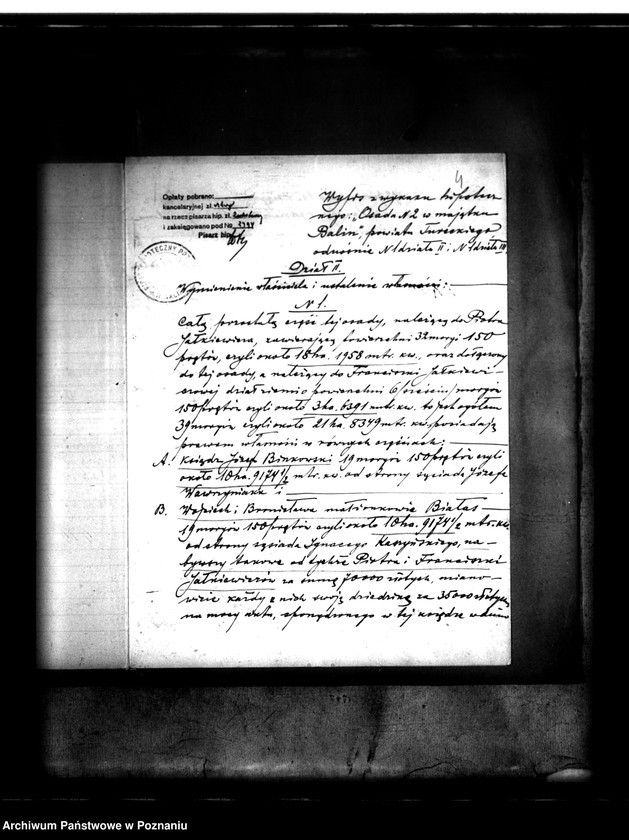 4
Opłaty pobrano:
kancelaryjnej zł.
na rzecz pisarza hip. zł.
i zaksięgowano pod №
Pisarz hip.
Wypis z wykazu hipotecz
nego: „Osada N2 w majątku
Balin", powiatu Tureckiego
odnośnie N1 działu II i N1 działu III
Dział II.
Wymienienie właściciela i ustalenie własności:
N 1.
Całą pozostałą część tej osady, należącą do Piotra
Jałkiewicza, zawierającą powierzchni 32 morgi 150
prętów, czyli około 18 ha. 1958 mtr. kw., oraz dołączony
do tej osady, a należący do Franciszki Jałkiewi-
czowej dział ziemi o powierzchni 6/sześciu/morgów
150 prętów czyli około 3 ha. 6391 mtr. kw. to jest ogółem
39 morgów czyli około 21 ha. 8349 mtr. kw. posiadają
prawem własności w równych częściach:
A. Ksiądz Józef Binkowski 19 morgów 150 prętów czyli
około 10 ha. 9174 1/2 mtr. kw. od strony sąsiada Józefa
Wawrzyniaka i
B. Wojciech i Bronisława małżonkowie Białas
19 morgów 150 prętów czyli około 10 ha. 9174 1/2 mtr. kw.
od strony sąsiada Ignacego na-
bywszy takowe od tychże Piotra i Franciszki
Jałkiewiczów za sumę 70000 złotych, miano-
wicie każdy z nich swoją dziedzinę za 35000 złotych
na mocy aktu, sporządzonego w tej księdze w dniu
Archiwum Państwowe w Poznaniu